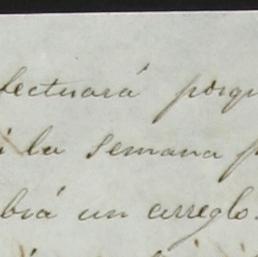 fectuará porqu
i la semana p
biá un arreglo.